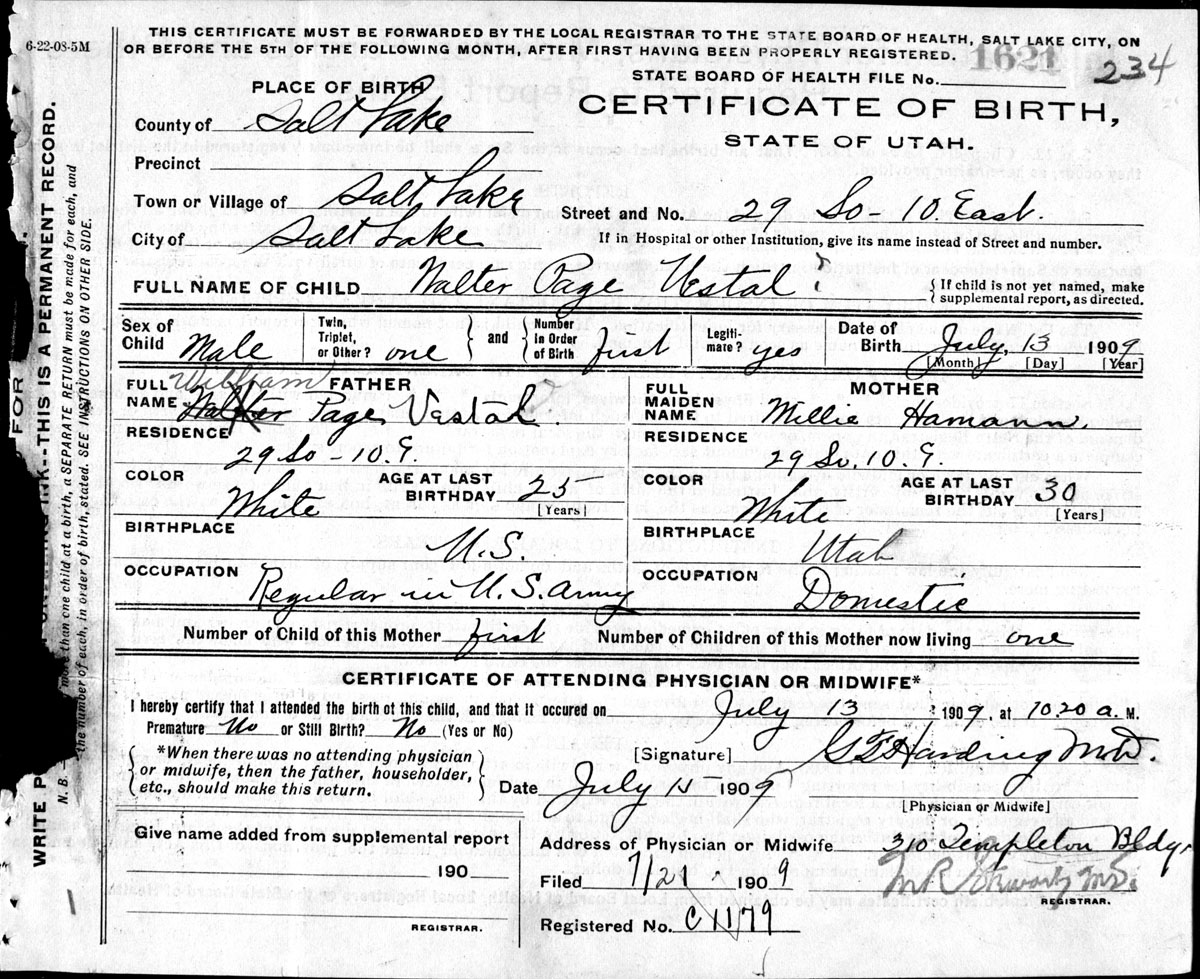 6-22-08-5M
THIS CERTIFICATE MUST BE FORWARDED BY THE LOCAL REGISTRAR TO THE STATE BOARD OF HEALTH, SALT LAKE CITY, ON
OR BEFORE THE 5TH OF THE FOLLOWING MONTH, AFTER FIRST HAVING BEEN PROPERLY REGISTERED.
1621
234
STATE BOARD OF HEALTH FILE No.
PLACE OF BIRTH
CERTIFICATE OF BIRTH,
STATE OF UTAH.
County of Salt Lake
Precinct
Town or Village of Salt Lake
Street and No. 29 So - 10. East.
City of Salt Lake
If in Hospital or other Institution, give its name instead of Street and number.
FULL NAME OF CHILD Walter Page Vestal ?
If child is not yet named, make
supplemental report, as directed.
Sex of Child Male
Twin, Triplet, or Other? one
and
Number in Order of Birth first
Legiti-mate? yes
Date of Birth July, 13 1909
[Month] [Day] [Year]
FATHER
FULL NAME William Walter Page Vestal.
RESIDENCE
29 So - 10. E.
COLOR White
AGE AT LAST BIRTHDAY 25
[Years]
BIRTHPLACE
U.S.
OCCUPATION
Regular in U.S. Army
MOTHER
FULL MAIDEN NAME Millie Hamann.
RESIDENCE
29 So. 10. E.
COLOR White
AGE AT LAST BIRTHDAY 30
[Years]
BIRTHPLACE
Utah
OCCUPATION
Domestic
Number of Child of this Mother first
Number of Children of this Mother now living one
CERTIFICATE OF ATTENDING PHYSICIAN OR MIDWIFE*
I hereby certify that I attended the birth of this child, and that it occured on July 13, 1909, at 10 20 a. M.
Premature No or Still Birth? No (Yes or No)
*When there was no attending physician
or midwife, then the father, householder,
etc., should make this return.
[Signature] G F Harding M.D.
Date July 15 1909
[Physician or Midwife]
Give name added from supplemental report
190
REGISTRAR.
Address of Physician or Midwife 310 Templeton Bldg.
Filed 7/21 1909
REGISTRAR.
Registered No. C 1179
WRITE P
THIS IS A PERMANENT RECORD.
N. B.
more than one child at a birth, a SEPARATE RETURN must be made for each, and
the number of each, in order of birth, stated. SEE INSTRUCTIONS ON OTHER SIDE.
FOR